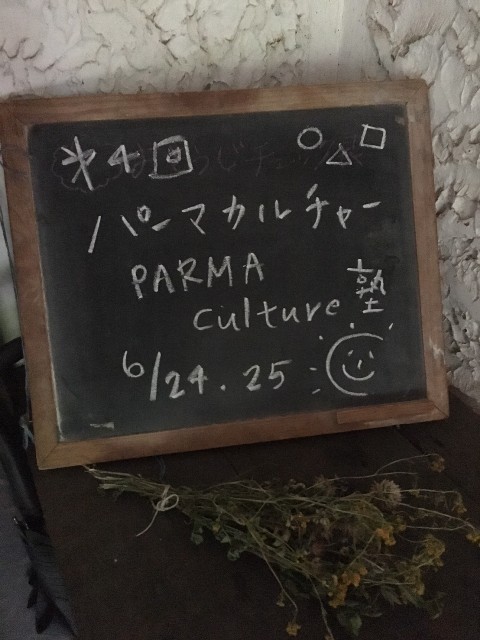 *4回
パーマカルチャー
PARMA
culture 塾
6/24.25